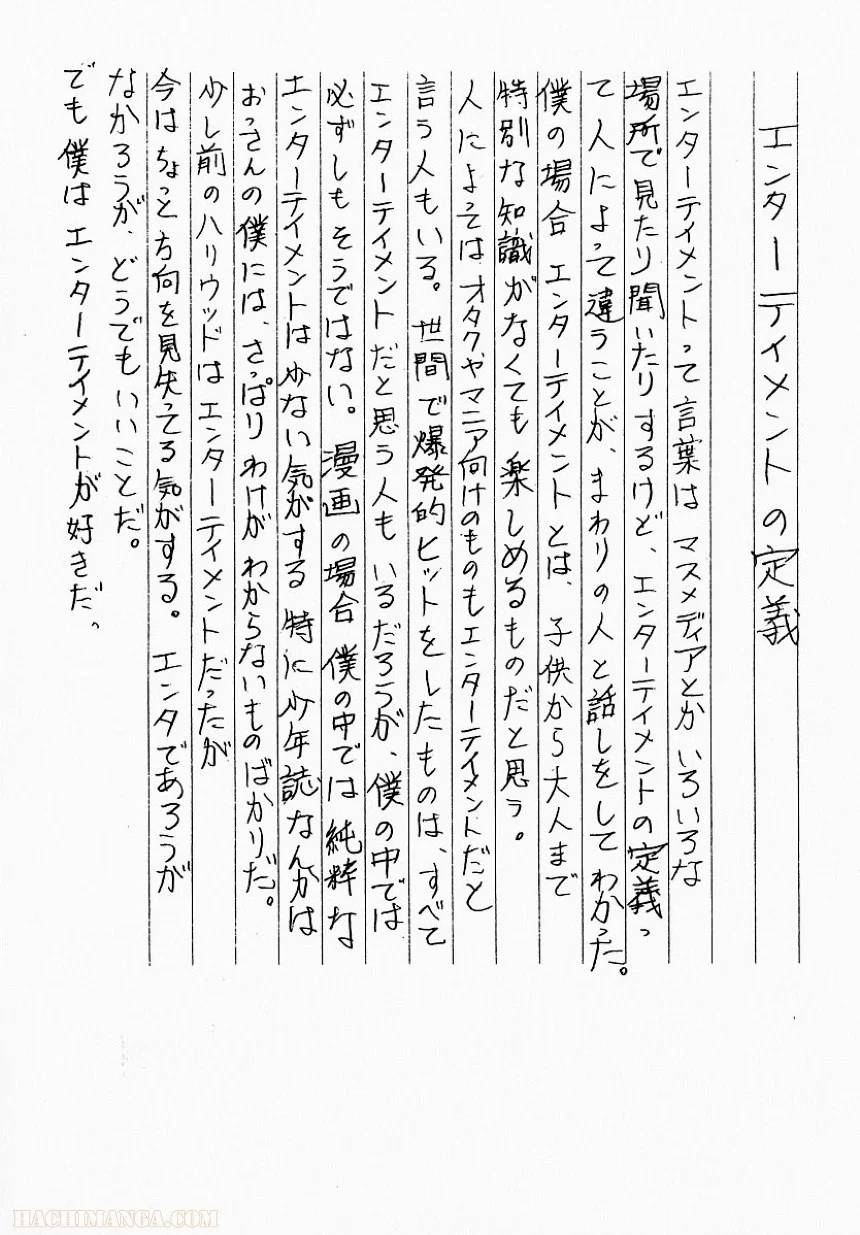 エンターテイメントの定義
エンターテイメントって言葉は マスメディアとか いろいろな
場所で見たり聞いたりするけど、エンターテイメントの定義っ
て人によって違うことが、まわりの人と話しをしてわかった。
僕の場合 エンターテイメントとは、子供から大人まで
特別な知識がなくても楽しめるものだと思う。
人によってはオタクやマニア向けのものもエンターテイメントだと
言う人もいる。世間で爆発的ヒットをしたものは、すべて
エンターテイメントだと思う人も いるだろうが、僕の中では
必ずしもそうではない。漫画の場合 僕の中では 純粋な
エンターテイメントは少ない気がする 特に少年誌なんかは
おっさんの僕には、さっぱりわけがわからないものばかりだ。
少し前のハリウッドはエンターテイメントだったが
今はちょっと方向を見失ってる気がする。 エンタであろうが
なかろうが、どうでもいいことだ。
でも僕はエンターテイメントが好きだっ
HACHIMANGA.COM